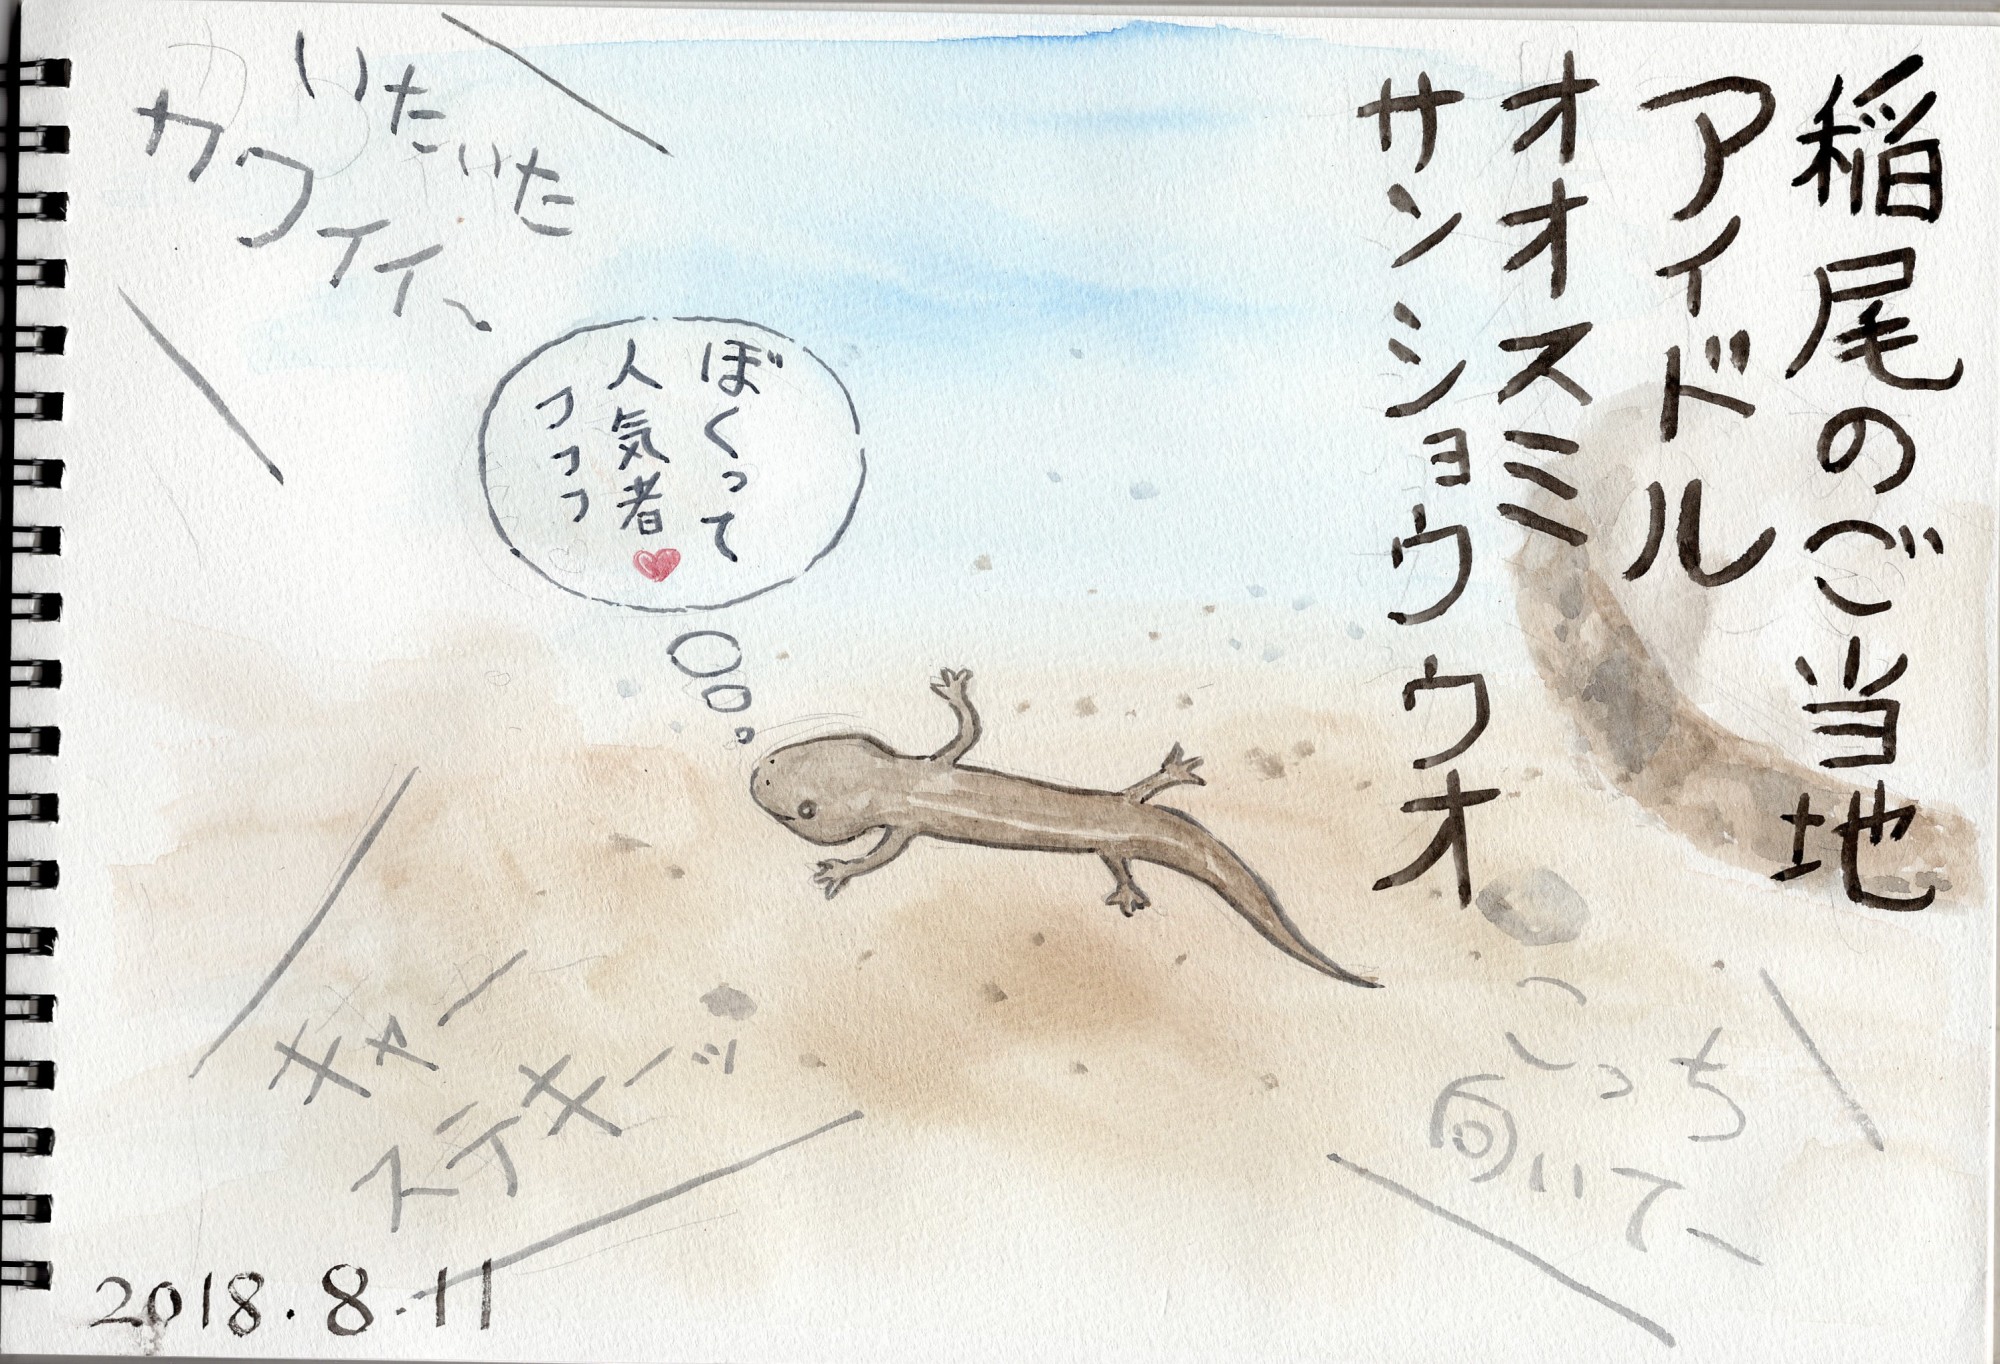 稲尾のご当地
アイドル
オオスミ
サンショウウオ
いたいた
カワイイ〜
ぼくって
人気者
フフフ
キャー
ステキーッ
こっち
向いてー
2018.8.11